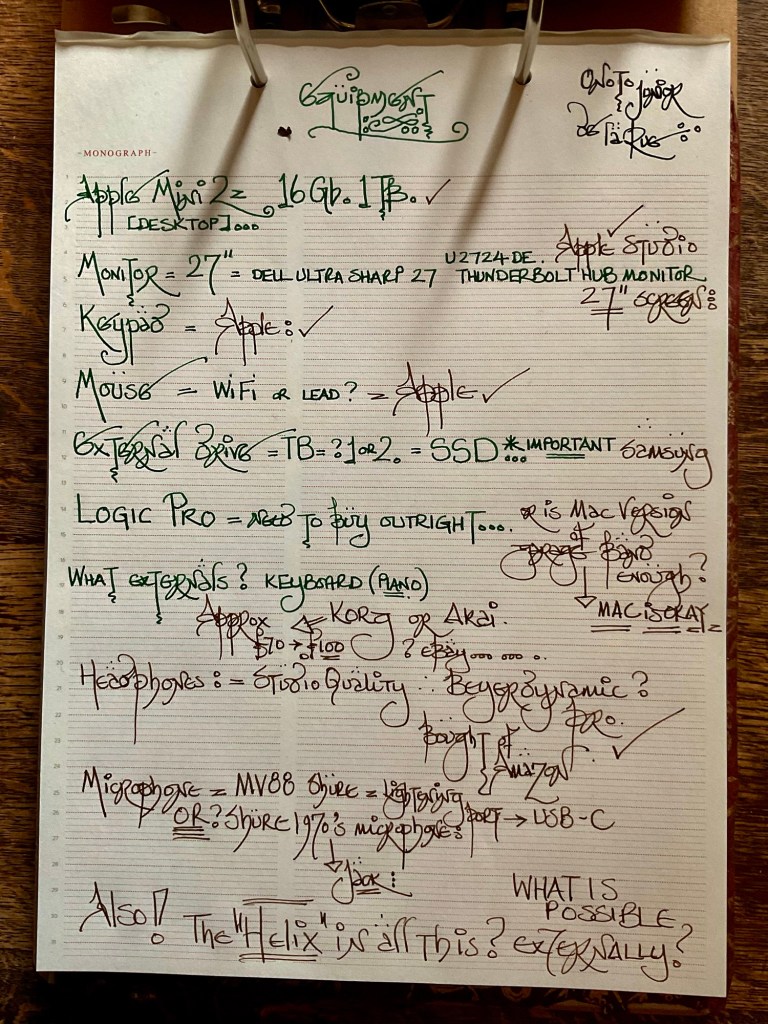 Equipment
Onoto Junior
De La Rue
MONOGRAPH
Apple Mini 2= 16Gb. 1TB. ✓
[DESKTOP]...
Apple Studio ✓
U2724DE.
MONITOR = 27" = DELL ULTRA SHARP 27 THUNDERBOLT HUB MONITOR
27" SCREEN:
Keypad = Apple: ✓
Mouse = WiFi OR LEAD? = Apple ✓
External Drive = TB = ? 1 OR 2. = SSD * IMPORTANT Samsung
LOGIC PRO = NEED TO buy OUTRIGHT....
or is Mac Version
of
Garage Band
ENOUGH?
MAC IS OKAY =
WHAT EXTERNALS? KEYBOARD (PIANO)
Approx ← KORG OR AKAI.
£70 → £100
? eBAY.......
Headphones: = Studio Quality ∴ Beyerdynamic?
PRO.
Bought of
Amazon ✓
Microphone = MV88 Shure = Lightening
PORT → USB-C
OR? Shure 1970's microphone:
Jack:
Also! The "Helix" in all This?
WHAT IS
POSSIBLE
EXTERNALLY?